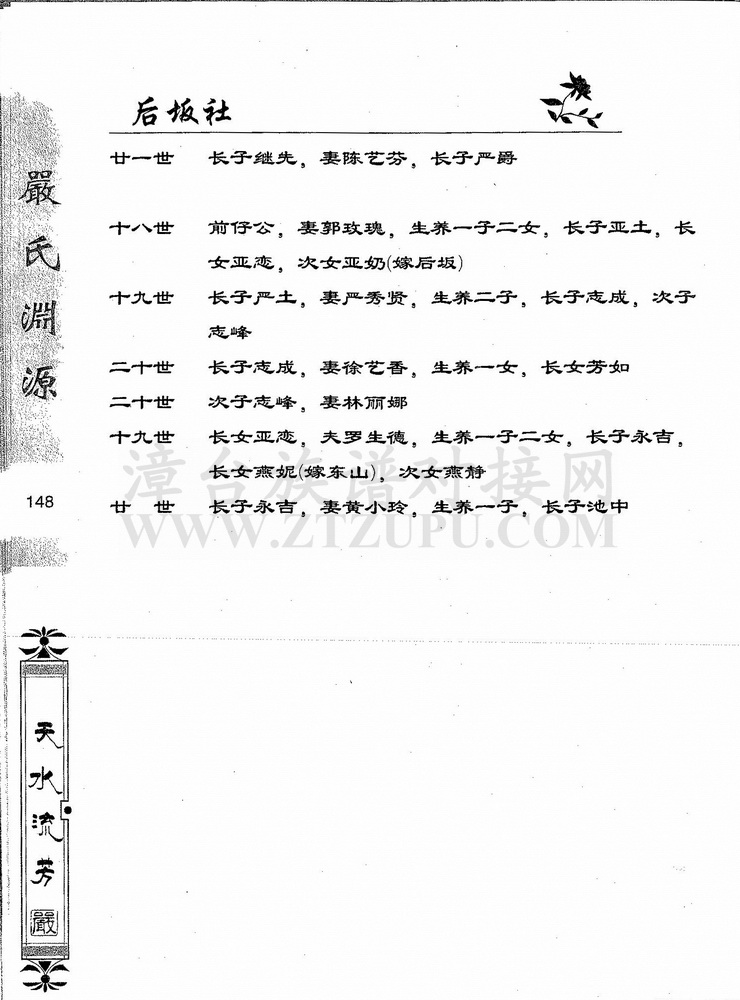 后坂社
廿一世 长子继先，妻陈艺芬，长子严爵
十八世 前仔公，妻郭玫瑰，生养一子二女，长子亚土，长
女亚恋，次女亚奶(嫁后坂)
十九世 长子严土，妻严秀贤，生养二子，长子志成，次子
志峰
二十世 长子志成，妻徐艺香，生养一女，长女芳如
二十世 次子志峰，妻林丽娜
十九世 长女亚恋，夫罗生德，生养一子二女，长子永吉，
长女燕妮(嫁东山)，次女燕静
廿 世 长子永吉，妻黄小玲，生养一子，长子池中
嚴氏淵源
148
天水流芳
嚴
漳台族谱对接网
WWW.ZTZUPU.COM